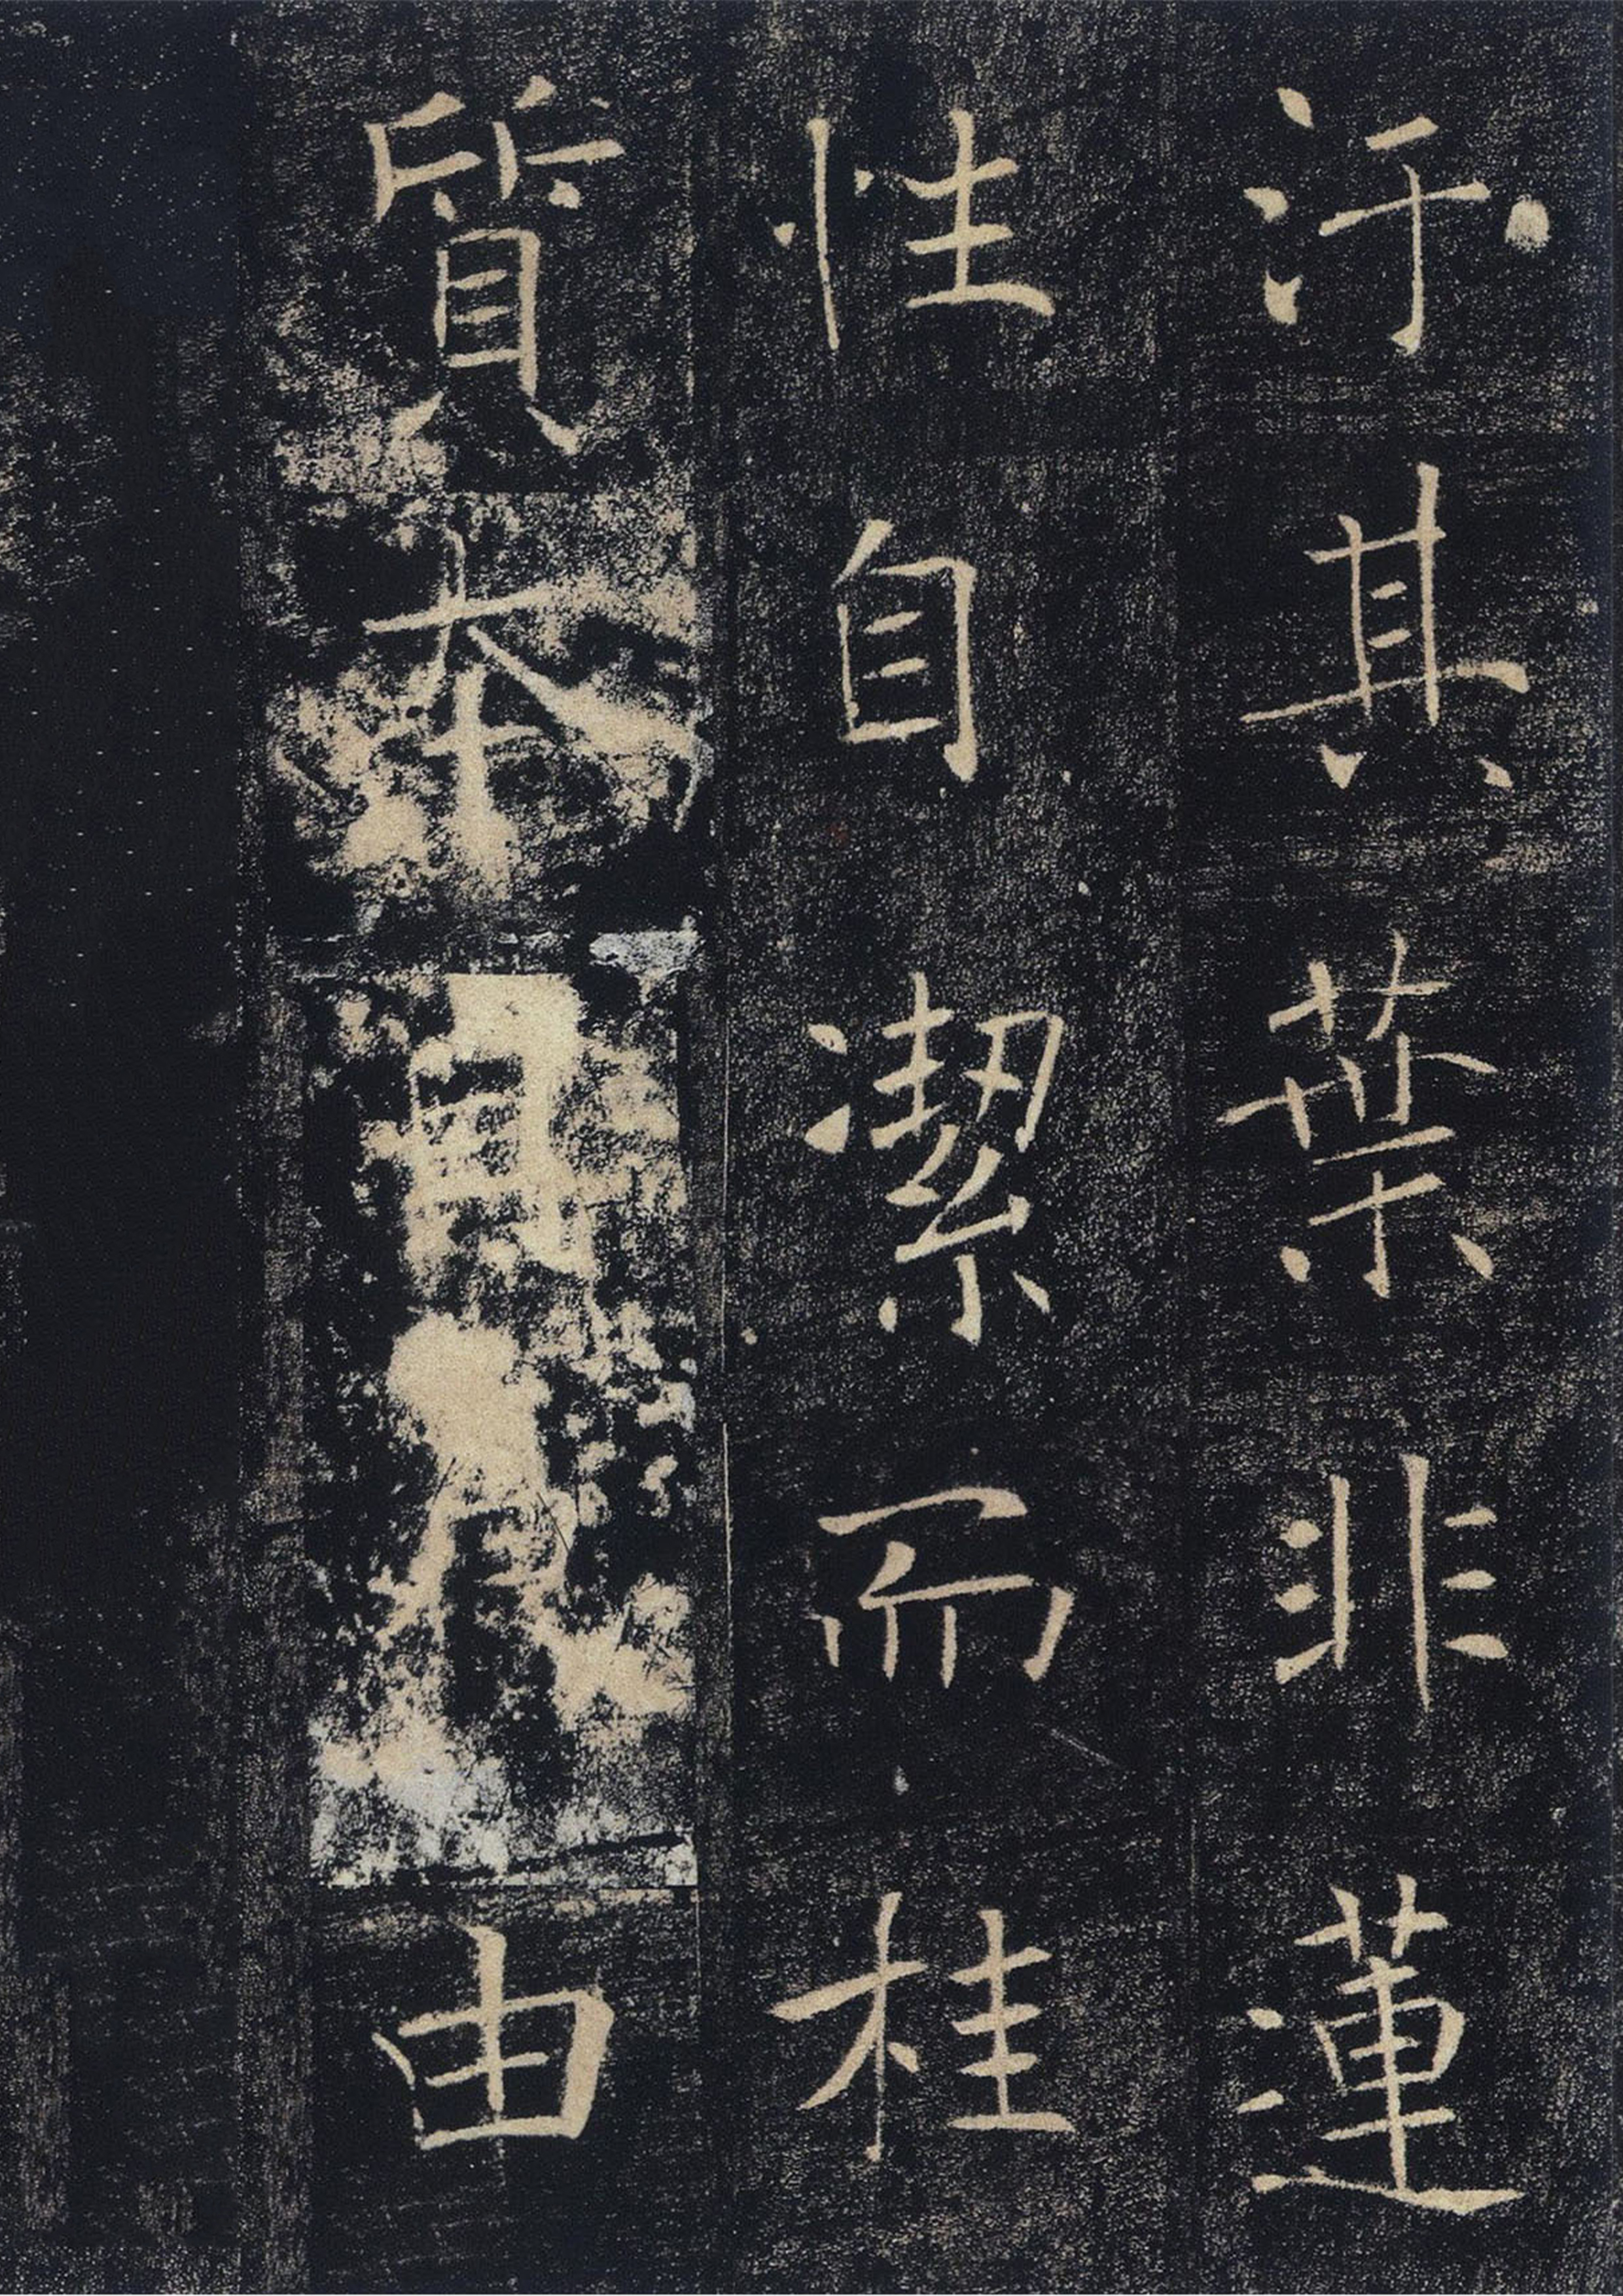 汙其葉非蓮
性自潔而桂
質本貞良由